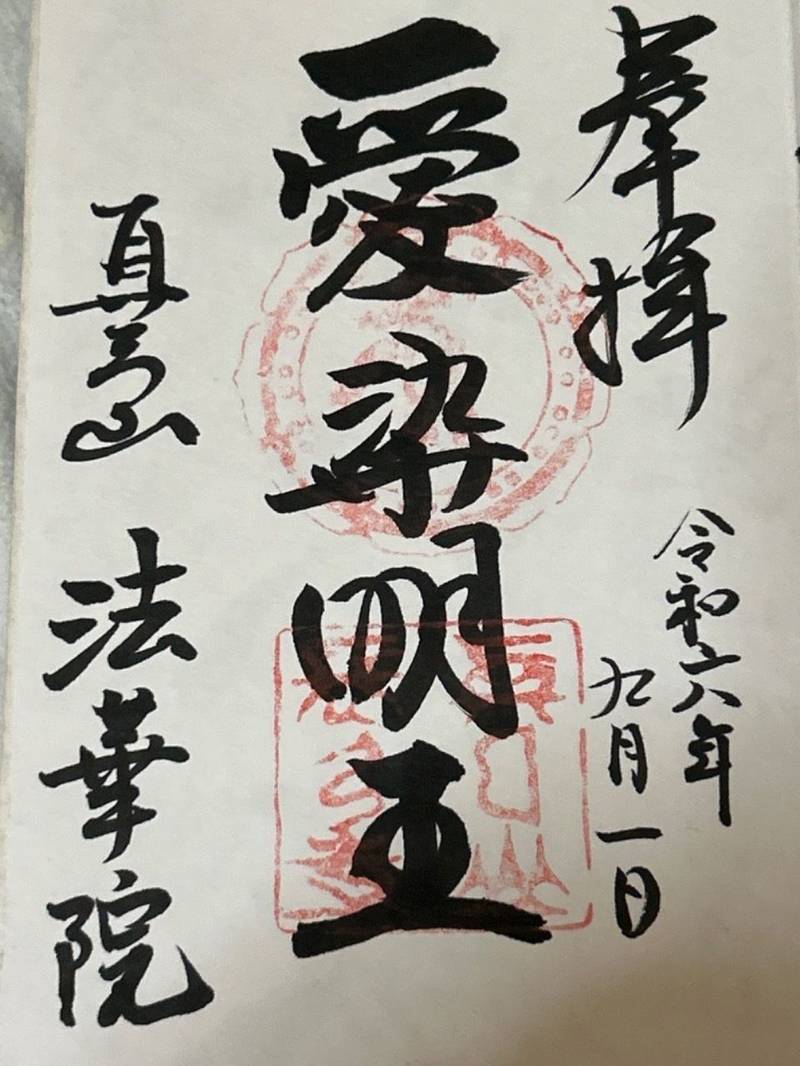 奉拝
令和六年
九月一日
愛染明王
法華院